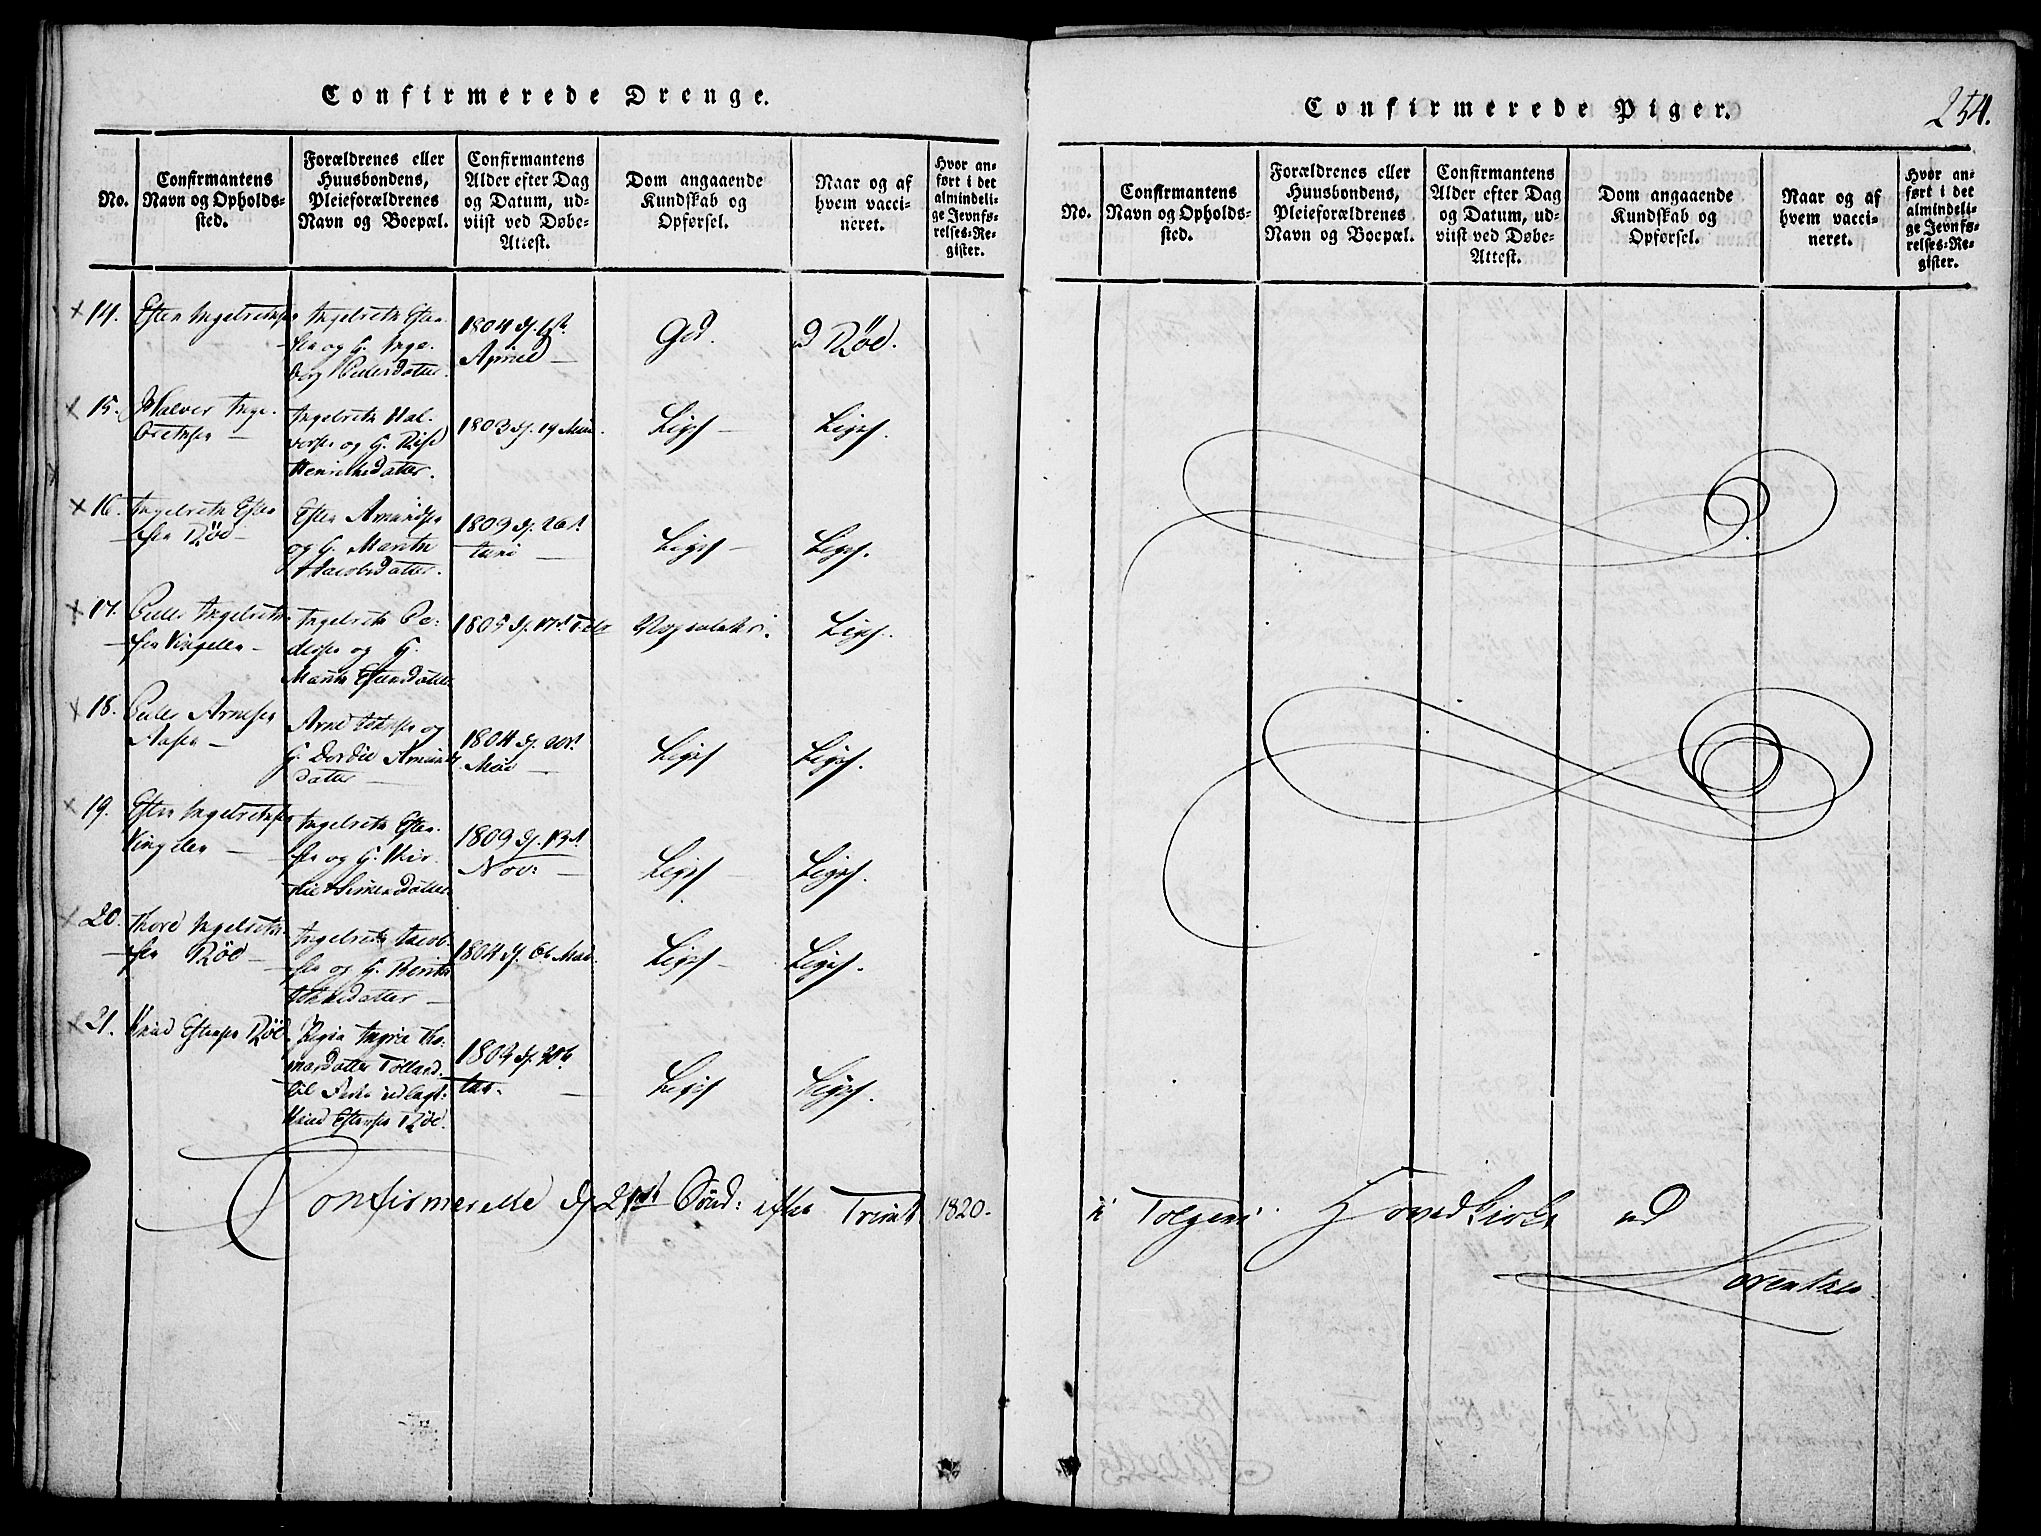 Confirmerede Drenge.
No.
Confirmantens
Navn og Opholds-
sted.
Forældrenes eller
Huusbondens,
Pleieforældrenes
Navn og Boepæl.
Confirmantens
Alder efter Dag
og Datum, ud-
viist ved Døbe-
Attest.
Dom angaaende
Kundskab og
Opførsel.
Naar og af
hvem vacci-
neret.
Hvor an-
ført i det
almindeli-
ge Jevnfø-
relses-Re-
gister.
14. Esten Ingebrethsen
Ingebreth Esten-
sen og H. Inge-
borg Pedersdatter.
1804 d.
April
God.
D Röe.
15. Halvor Inge-
brethsen
Ingebreth Hal-
vorsen og H.
Henrichsdatter.
1803 d. 19 Mai.
Liges
Ligs.
16. Ingebreth Esten-
sen Röe
Esten Amundsen
og H. Marithe
Jacobsdatter.
26d
Juni
Ligs
Ligs.
17. Peder Ingebreth-
sen Vingelen
Ingebreth Pe-
dersen og H.
Estensdatter
1805 d. 17d Febr
Ligs.
18. Peder Arnesen
Aasen
Arne Johnsen og
H. Dordie Amunds
datter
1804 d. 20d
Mai
Ligs
Ligs.
19. Esten Ingebrethsen
Vingelen
Ingebreth Esten-
sen og H. Kir-
stie Simensdatter
13d
Nov:
Ligs
Ligs.
20. Thore Ingebreth-
sen Röe
Ingebreth Jacob-
sen og H. Berith
Johnsdatter
1804 d. 6t Mai.
Ligs
Ligs.
21. Knud Estensen Röe
Pigen Ingria Tho-
masdatter Tolland.
til Fader udlagt:
Knud Estensen Röe.
1803 d. 30t
Jan.
Ligs
Ligs.
Confirmerede d. 21de Sönd: efter Trinit 1820.
Confirmerede Piger.
254.
No.
Confirmantens
Navn og Opholds-
sted.
Forældrenes eller
Huusbondens,
Pleieforældrenes
Navn og Boepæl.
Confirmantens
Alder efter Dag
og Datum, ud-
viist ved Døbe-
Attest.
Dom angaaende
Kundskab og
Opførsel.
Naar og af
hvem vacci-
neret.
Hvor an-
ført i det
almindeli-
ge Jevnfø-
relses-Re-
gister.
i Tolgens Hovedkirke ved
Lorentzen.